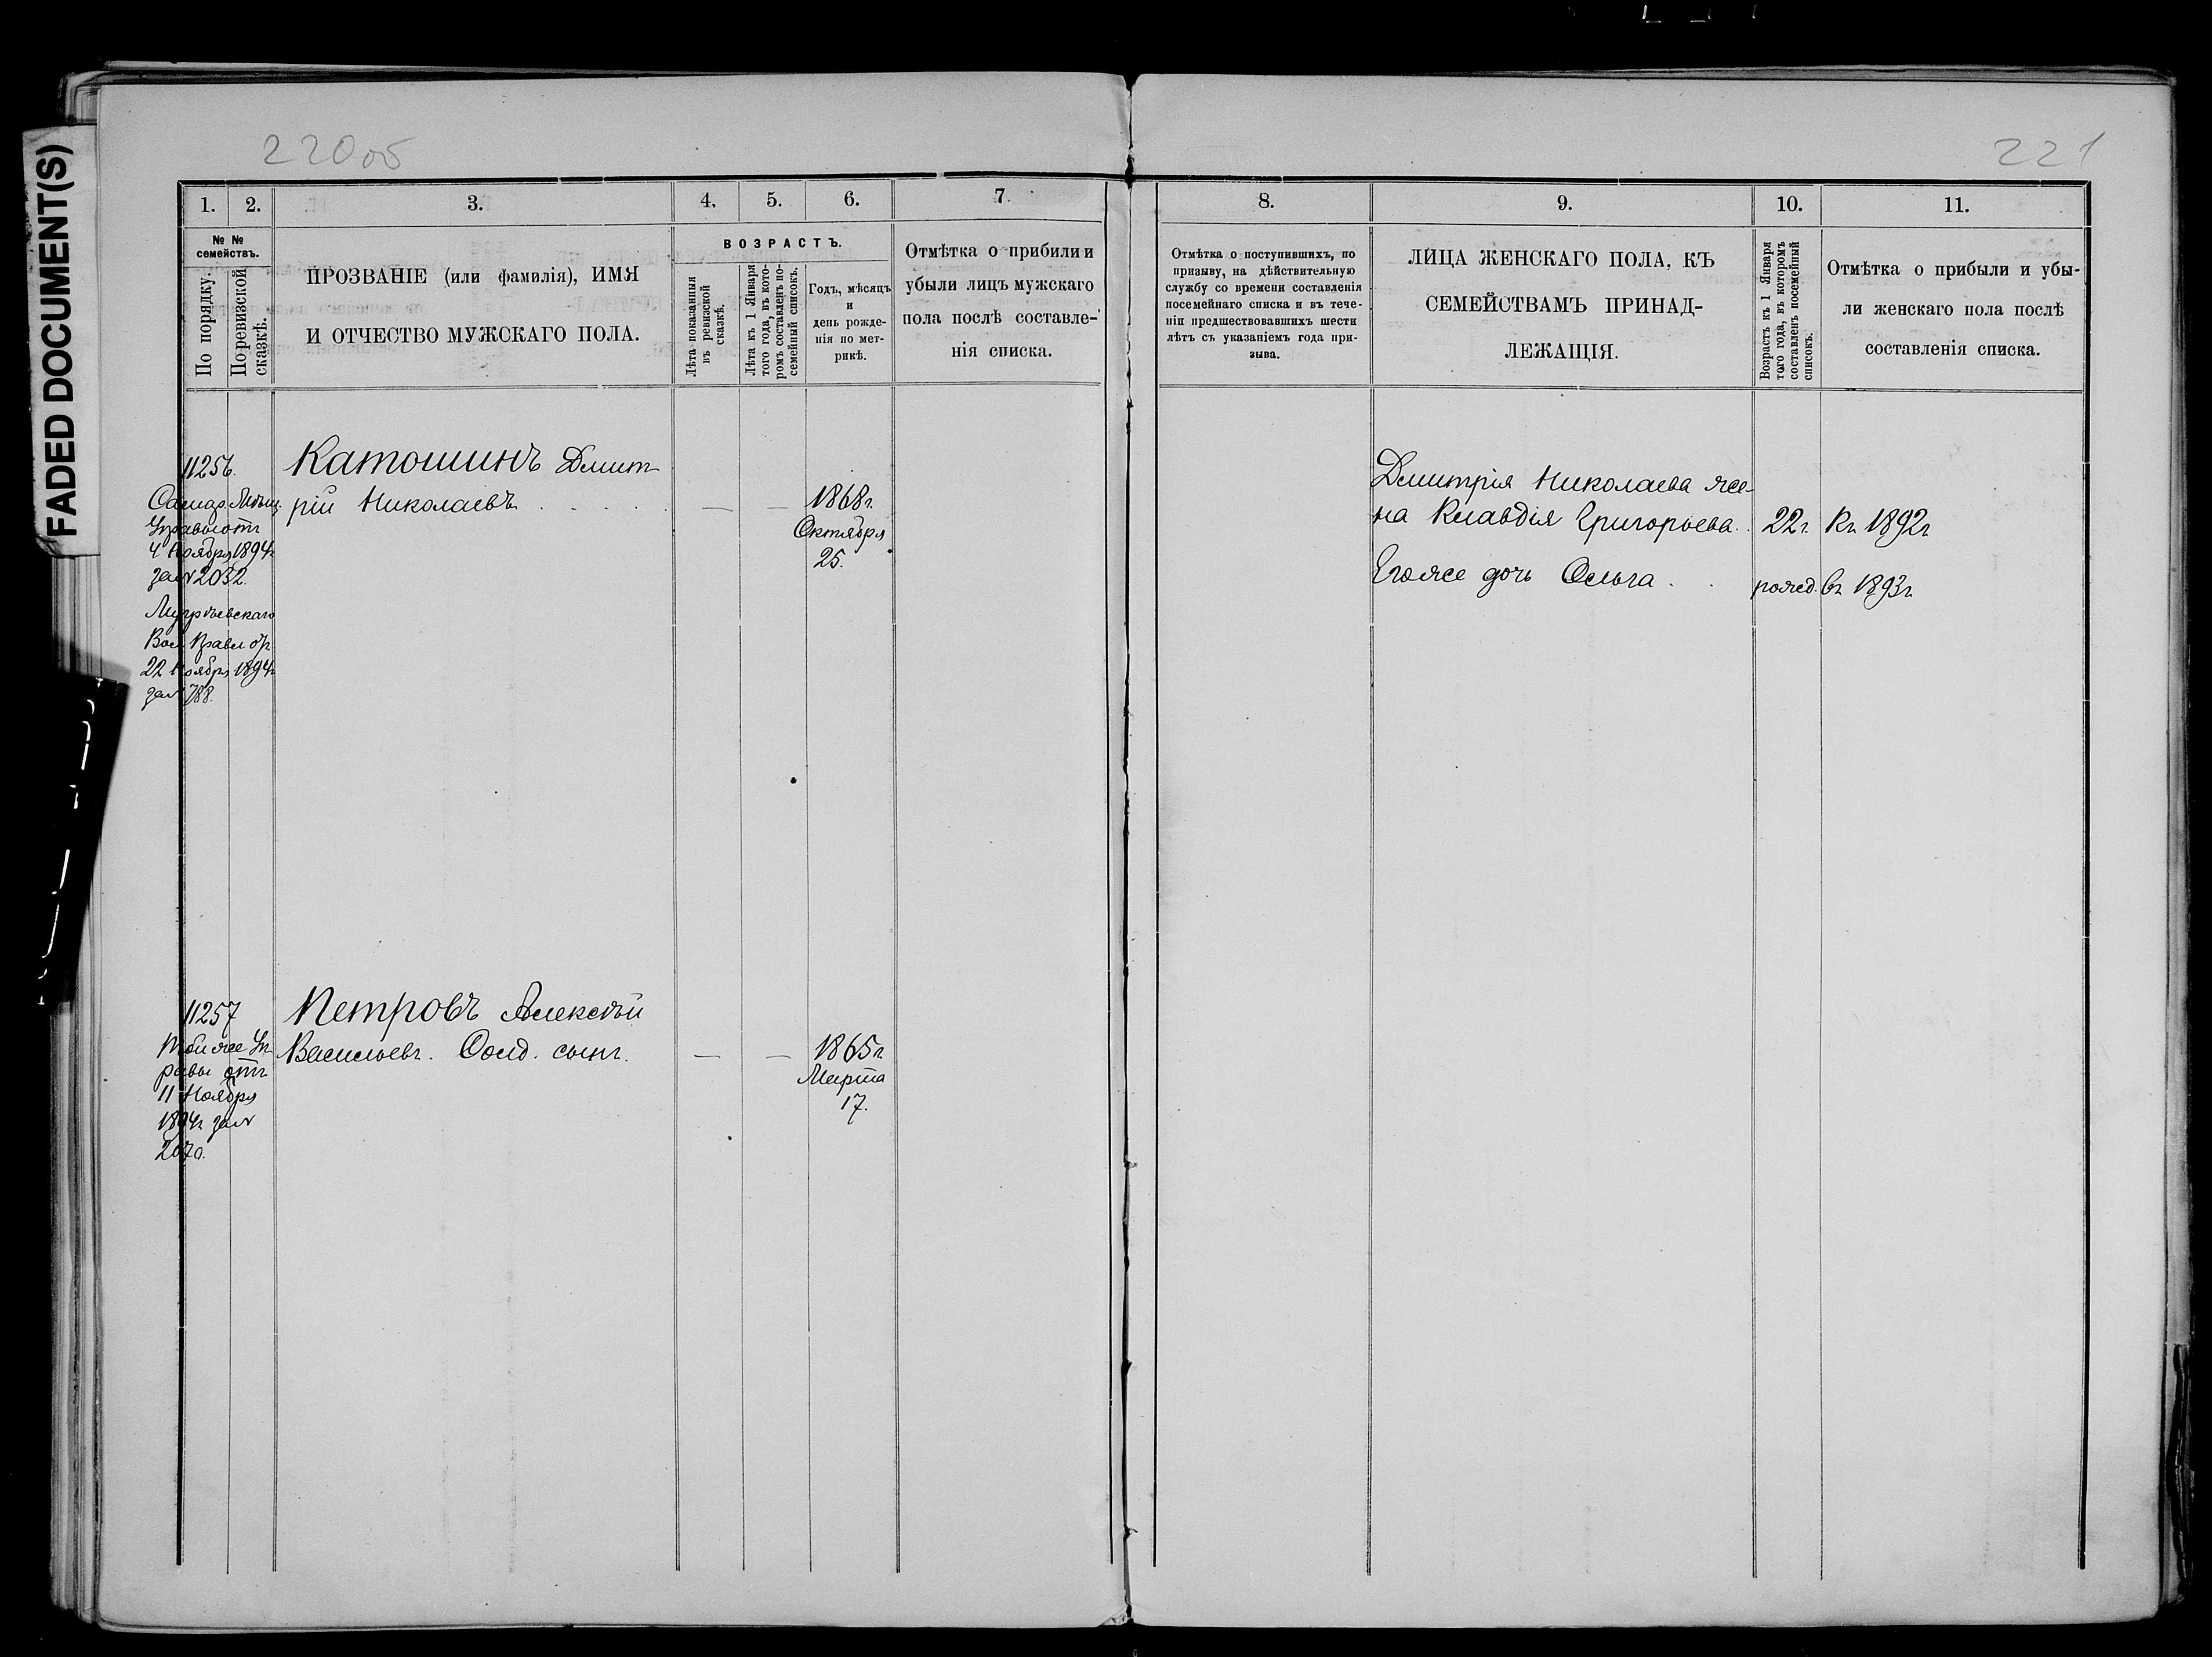 FADED DOCUMENT(S)
220об
221
1.
2.
3.
4.
5.
6.
7.
№ №
семействъ.
По порядку.
По ревизской
сказкѣ.
ПРОЗВАНІЕ (или фамилія), ИМЯ
И ОТЧЕСТВО МУЖСКАГО ПОЛА.
ВОЗРАСТЪ.
Лѣта показанныя
въ ревизской
сказкѣ.
Лѣта къ 1 Января
того года, въ кото-
ромъ составленъ по-
семейный списокъ.
Годъ, мѣсяцъ
и
день рожде-
нія по мет-
рикѣ.
Отмѣтка о прибили и
убыли лицъ мужскаго
пола послѣ составле-
нія списка.
8.
9.
10.
11.
Отмѣтка о поступившихъ, по
призыву, на дѣйствительную
службу со времени составленія
посемейнаго списка и въ тече-
ніи предшествовавшихъ шести
лѣтъ съ указаніемъ года при-
зыва.
ЛИЦА ЖЕНСКАГО ПОЛА, КЪ
СЕМЕЙСТВАМЪ ПРИНАД-
ЛЕЖАЩІЯ.
Возрастъ къ 1 Января
того года, въ которомъ
составленъ посемейный
списокъ.
Отмѣтка о прибыли и убы-
ли женскаго пола послѣ
составленія списка.
11256.
Самар. Мѣщ.
Управы отъ
4 Ноября 1894г
за № 2032.
Вол. Правл. отъ
22 Ноября 1894г
за № 788.
Катошинъ Дмит-
рій Николаевъ . . . . .
— —
1868г.
Октября
25.
Дмитрія Николаева же-
на Клавдія Григорьева. 22г. Къ 1892г
Его же дочь Ольга . . рожд. въ 1893г.
11257
Той же Уп-
равы отъ
11 Ноября
1894г за №
2070.
Петровъ Алексѣй
Васильевъ. Солд. сынъ.
— —
1865г
Марта
17.